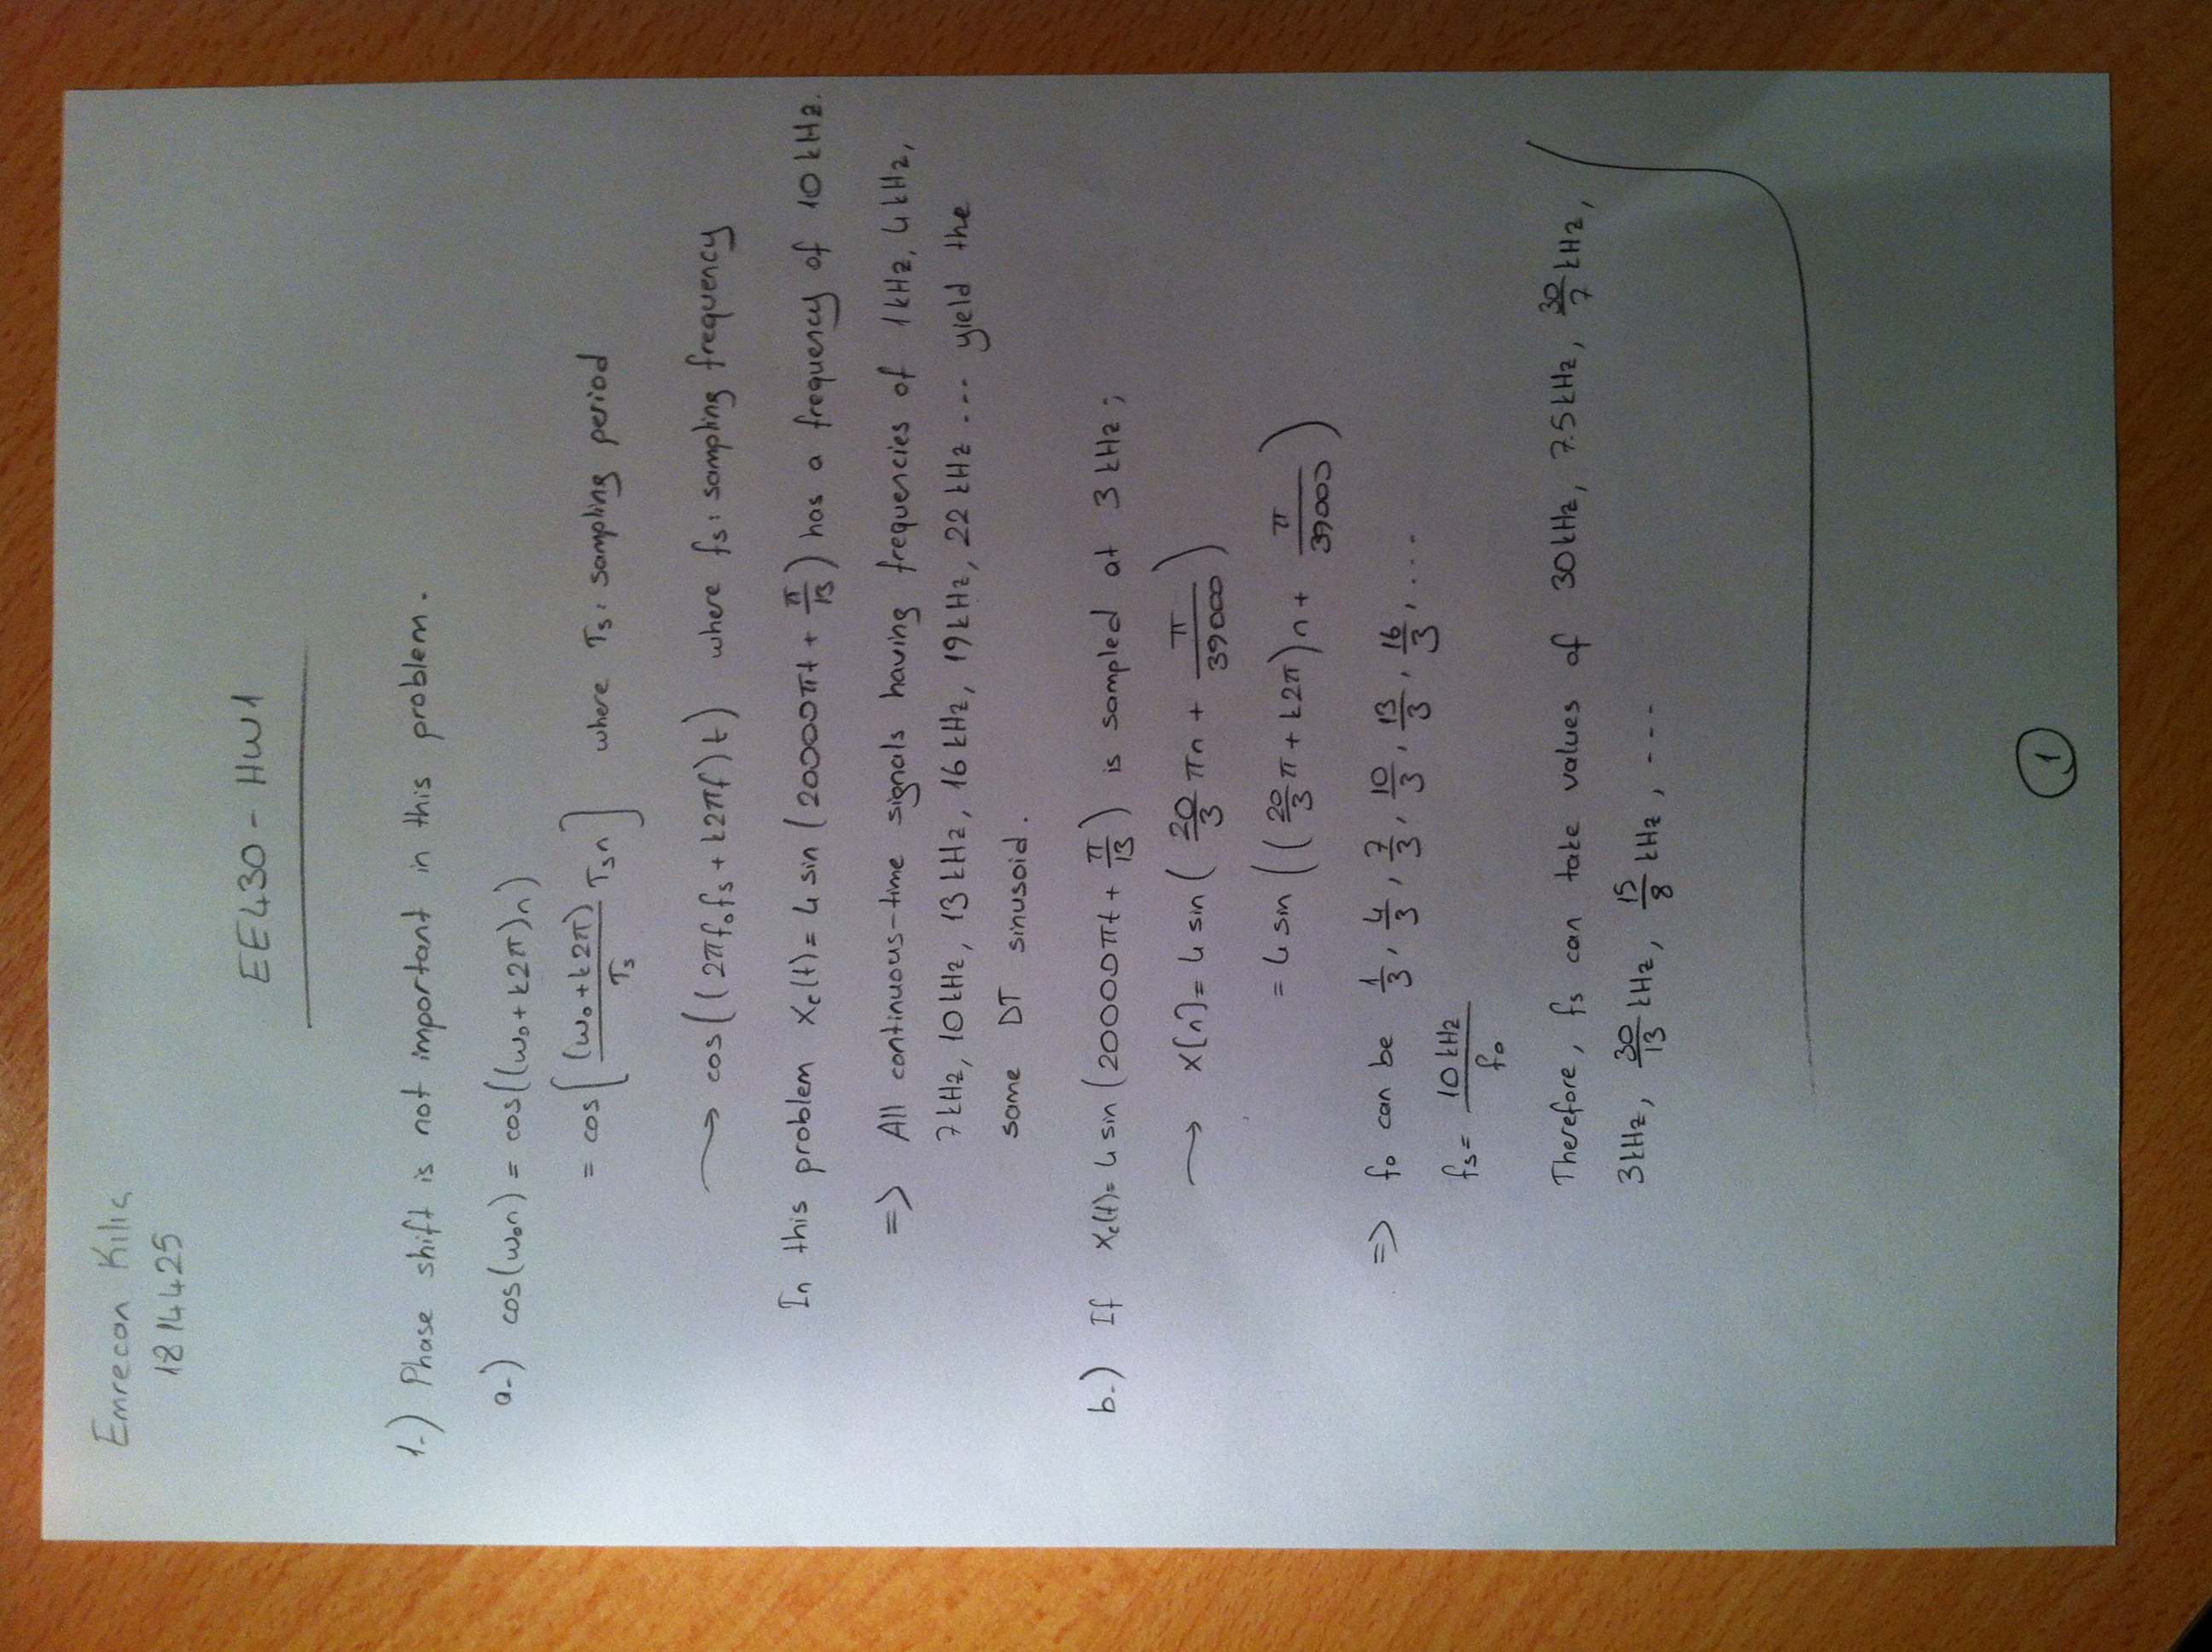 Emrecan Kılıç
1814425
EE430 - HW1
1.) Phase shift is not important in this problem.
a.) cos(ω₀n) = cos((ω₀+k2π)n)
= cos[ (ω₀+k2π)/Ts Tsn ] where Ts: sampling period
→ cos((2πf₀fs + k2πf)t) where fs: sampling frequency
In this problem Xc(t)= 4 sin (20000πt + π/13) has a frequency of 10 kHz.
=> All continuous-time signals having frequencies of 1kHz, 4kHz,
7kHz, 10kHz, 13kHz, 16kHz, 19kHz, 22kHz ... yield the
same DT sinusoid.
b.) If Xc(t)= 4 sin (20000πt + π/13) is sampled at 3 kHz;
→ X[n]= 4 sin ( 20/3 πn + π/39000 )
= 4 sin ((20/3 π + k2π)n + π/39000 )
=> f₀ can be 1/3, 4/3, 7/3, 10/3, 13/3, 16/3, ...
fs= 10 kHz/f₀
Therefore, fs can take values of 30kHz, 7.5kHz, 30/7 kHz,
3kHz, 30/13 kHz, 15/8 kHz, ---
1